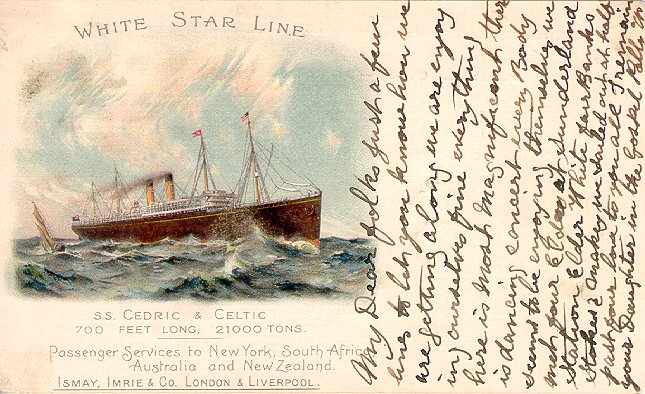 WHITE STAR LINE
S.S. CEDRIC & CELTIC
700 FEET LONG, 21000 TONS.
Passenger Services to New York, South Africa,
Australia and New Zealand.
ISMAY, IMRIE & CO. LONDON & LIVERPOOL.
My Dear folks just a few
lines to let you know how we
are getting along we are enjoy
ing ourselves fine everything
here is most magnificent there
is dancing concert every Body
seems to be enjoying themselves we
met four Elders at Sunderland
station Elder White fairBanks
Stokes & we sailed at half
past four love to you all I remain
your Daughter in the Gospel